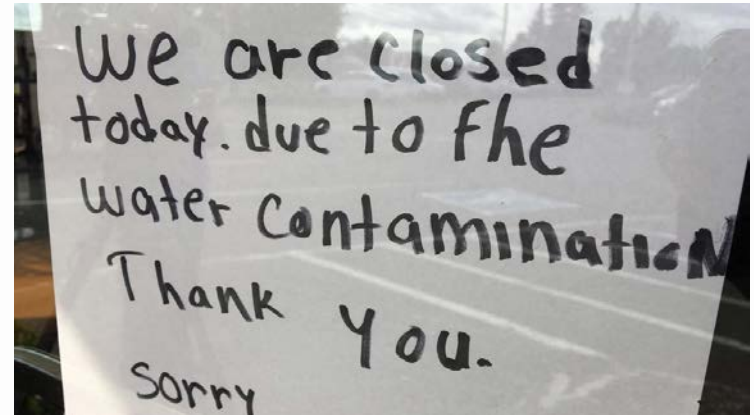 we are closed
today. due to the
water contamination
Thank you.
sorry